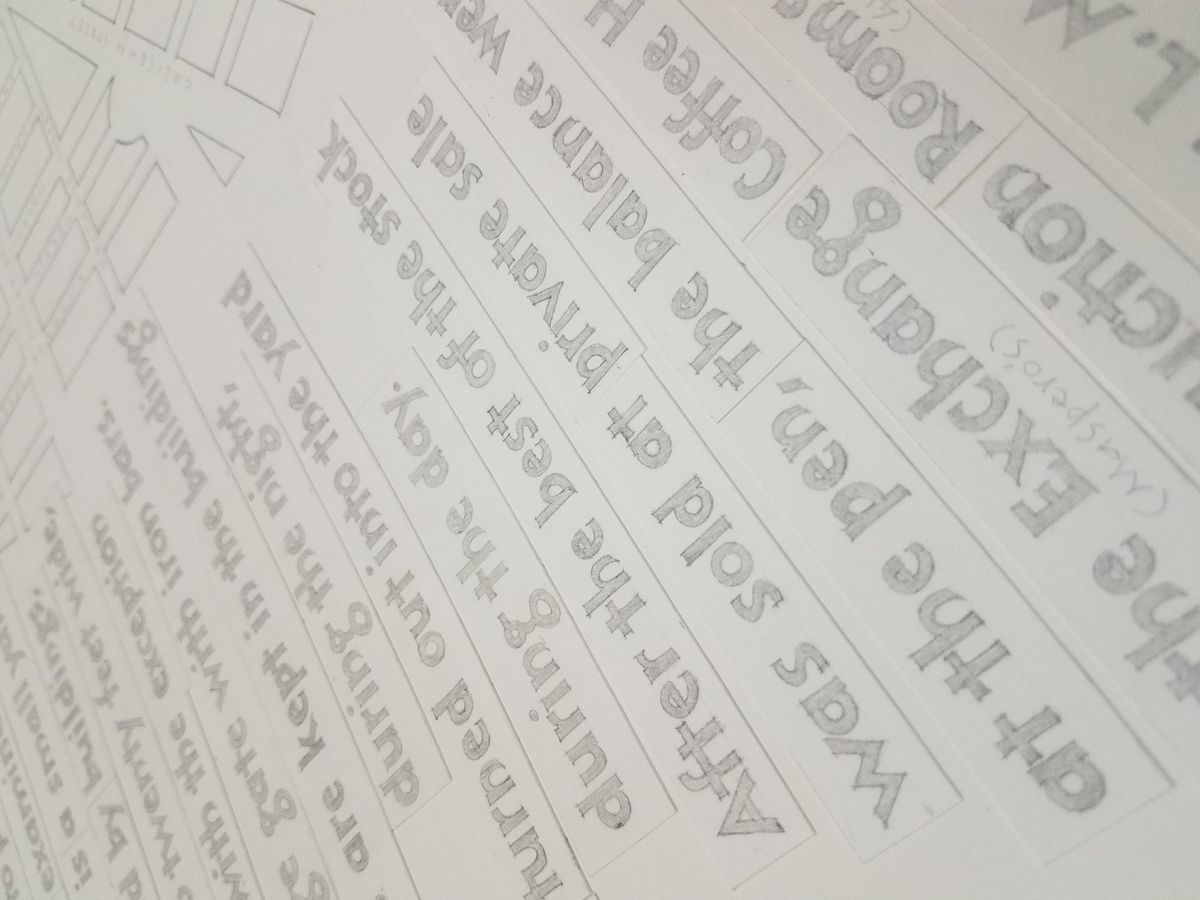 examine
is a small
d by buildings,
twenty feet wide,
with the exception
ge gate with iron bars.
are kept in the buildings
during the night,
turned out into the yard
during the day.
After the best of the stock
was sold at private sale
at the pen, the balance wer
the Exchange Coffee H
(Maspero's)
uction Rooms
L. M
COLISEUM STREET